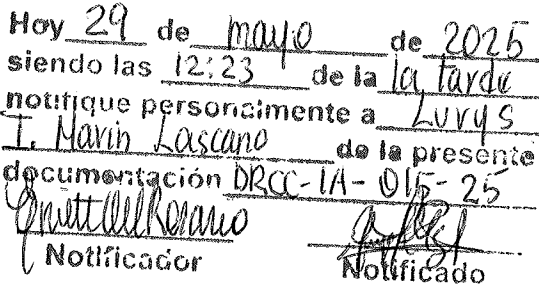 Hoy 29 de mayo de 2025
siendo las 12:23 de la la tarde
notifique personalmente a Lurys
I. Marin Lascano de la presente
documentación DRCC-IA-015-25
Notificador Notificado